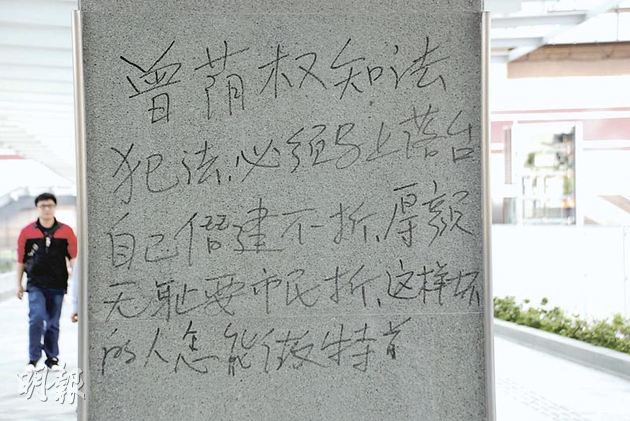 曾荫权知法
犯法,必须马上落台
自己僭建不折,厚颜
无耻要市民折,这样坏
的人怎能做特首
明報